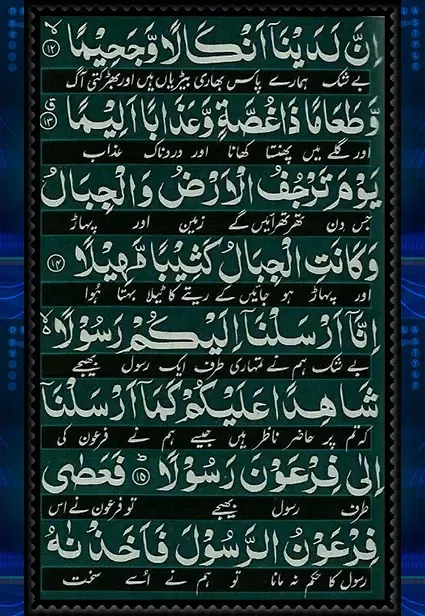 اِنَّ لَدَيْنَاۤ اَنْكَالًا وَّجَحِيْمًا ۙ﴿۱۲﴾
بے شک ہمارے پاس بھاری بیڑیاں ہیں اور بھڑکتی آگ
وَّطَعَامًا ذَا غُصَّةٍ وَّعَذَابًا اَلِيْمًا ۗ﴿۱۳﴾
اور گلے میں پھنستا کھانا اور دردناک عذاب
يَوْمَ تَرْجُفُ الْاَرْضُ وَالْجِبَالُ
جس دن تھرتھرائیں گے زمین اور پہاڑ
وَكَانَتِ الْجِبَالُ كَثِيْبًا مَّهِيْلًا ﴿۱۴﴾
اور پہاڑ ہو جائیں گے ریتے کا ٹیلا بہتا ہوا
اِنَّاۤ اَرْسَلْنَاۤ اِلَيْكُمْ رَسُوْلًا ۙ
بے شک ہم نے تمہاری طرف ایک رسول بھیجے
شَاهِدًا عَلَيْكُمْ كَمَاۤ اَرْسَلْنَاۤ
کہ تم پر حاضر ناظر ہیں جیسے ہم نے فرعون کی
اِلٰى فِرْعَوْنَ رَسُوْلًا ؕ﴿۱۵﴾ فَعَصٰى
طرف رسول بھیجے تو فرعون نے اس
فِرْعَوْنُ الرَّسُوْلَ فَاَخَذْنٰهُ
رسول کا حکم نہ مانا تو ہم نے اُسے سخت